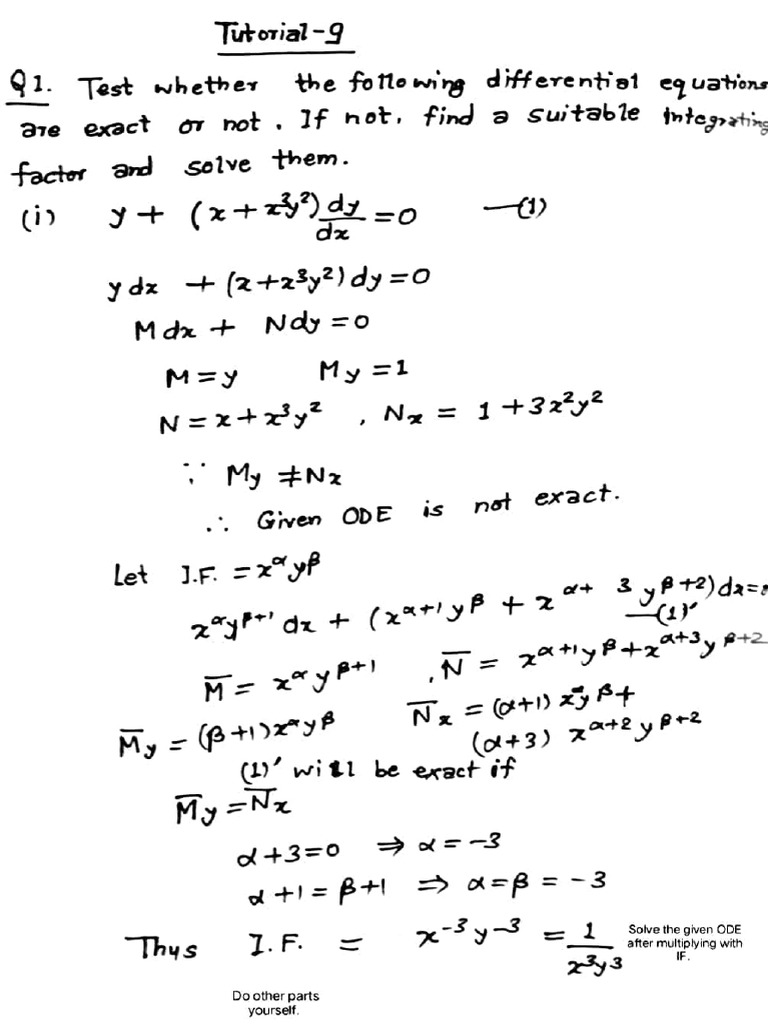 Tutorial-9
Q1. Test whether the following differential equations
are exact or not. If not, find a suitable integrating
factor and solve them.
(i) y + (x + x³y²) dy/dx = 0 —(1)
y dx + (x + x³y²) dy = 0
M dx + N dy = 0
M = y My = 1
N = x + x³y² , Nx = 1 + 3x²y²
∵ My ≠ Nx
∴ Given ODE is not exact.
Let I.F. = x^α y^β
x^α y^(β+1) dx + (x^(α+1) y^β + x^(α+3) y^(β+2)) dx = 0 —(1)'
M̄ = x^α y^(β+1) , N̄ = x^(α+1) y^β + x^(α+3) y^(β+2)
M̄y = (β+1) x^α y^β N̄x = (α+1) x^α y^β +
(α+3) x^(α+2) y^(β+2)
(1)' will be exact if
M̄y = N̄x
α + 3 = 0 ⇒ α = -3
α + 1 = β + 1 ⇒ α = β = -3
Thus I.F. = x^-3 y^-3 = 1/(x³y³)
Solve the given ODE
after multiplying with
IF.
Do other parts
yourself.